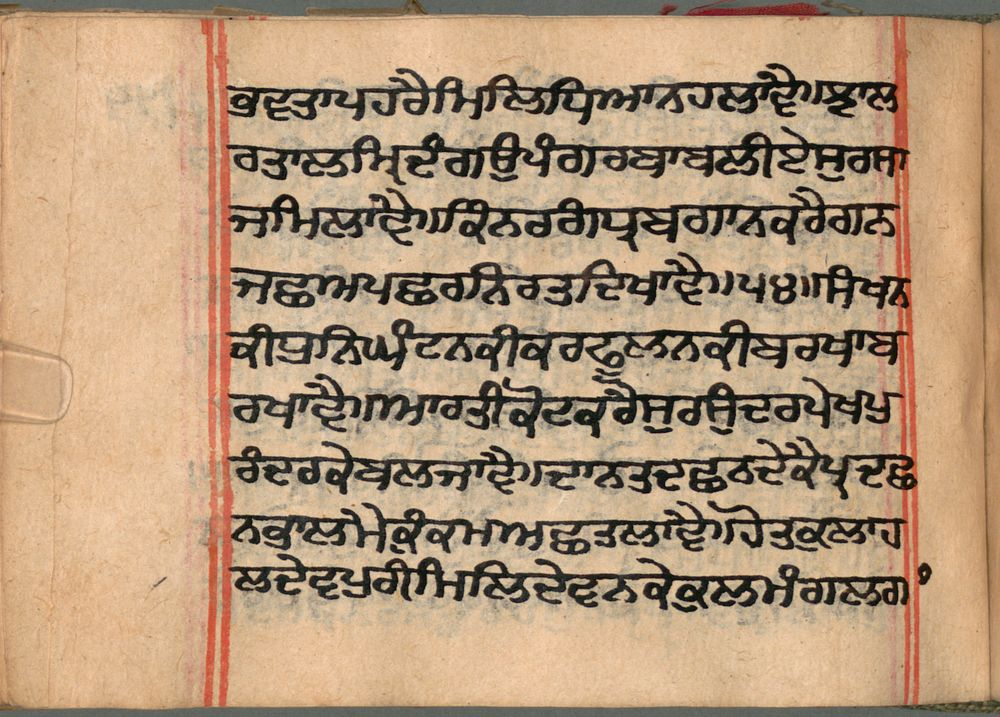 ਬ੍ਰਿਵਤਾਪਹਰੈਮਿਲਿਧਿਆਨਹਲਾਂਵੈ॥ਝਾਲ
ਰਤਾਲਮ੍ਰਿਦੰਗਉਪੰਗਰਬਾਬਲੀਏਸੁਰਸਾ
ਜਮਿਲਾਂਵੈ॥ਕਿੰਨਰਗੰਧ੍ਰਬਗਾਨਕਰੈਗਨ
ਜਛਅਪਛਰਨਿਰਤਦਿਖਾਂਵੈ॥੫੪॥ਸੰਖਨ
ਕੀਧੁਨਿਘੰਟਨਕੀਕਰਫੂਲਨਕੀਬਰਖਾਬ
ਰਖਾਂਵੈ॥ਆਰਤੀਕੋਟਕਰੈਸੁਰਸੁੰਦਰਪੇਖਪੁ
ਰੰਦਰਕੇਬਲਜਾਂਵੈ॥ਦਾਨਤਦਛਨਦੈਕੈਪ੍ਰਦਛ
ਨਭਾਲਮੇਕੁੰਕਮਅਛਤਲਾਂਵੈ॥ਹੋਤਕੁਲਾਹ
ਲਦੇਵਪੁਰੀਮਿਲਿਦੇਵਨਕੇਕੁਲਮੰਗਲਗਾ